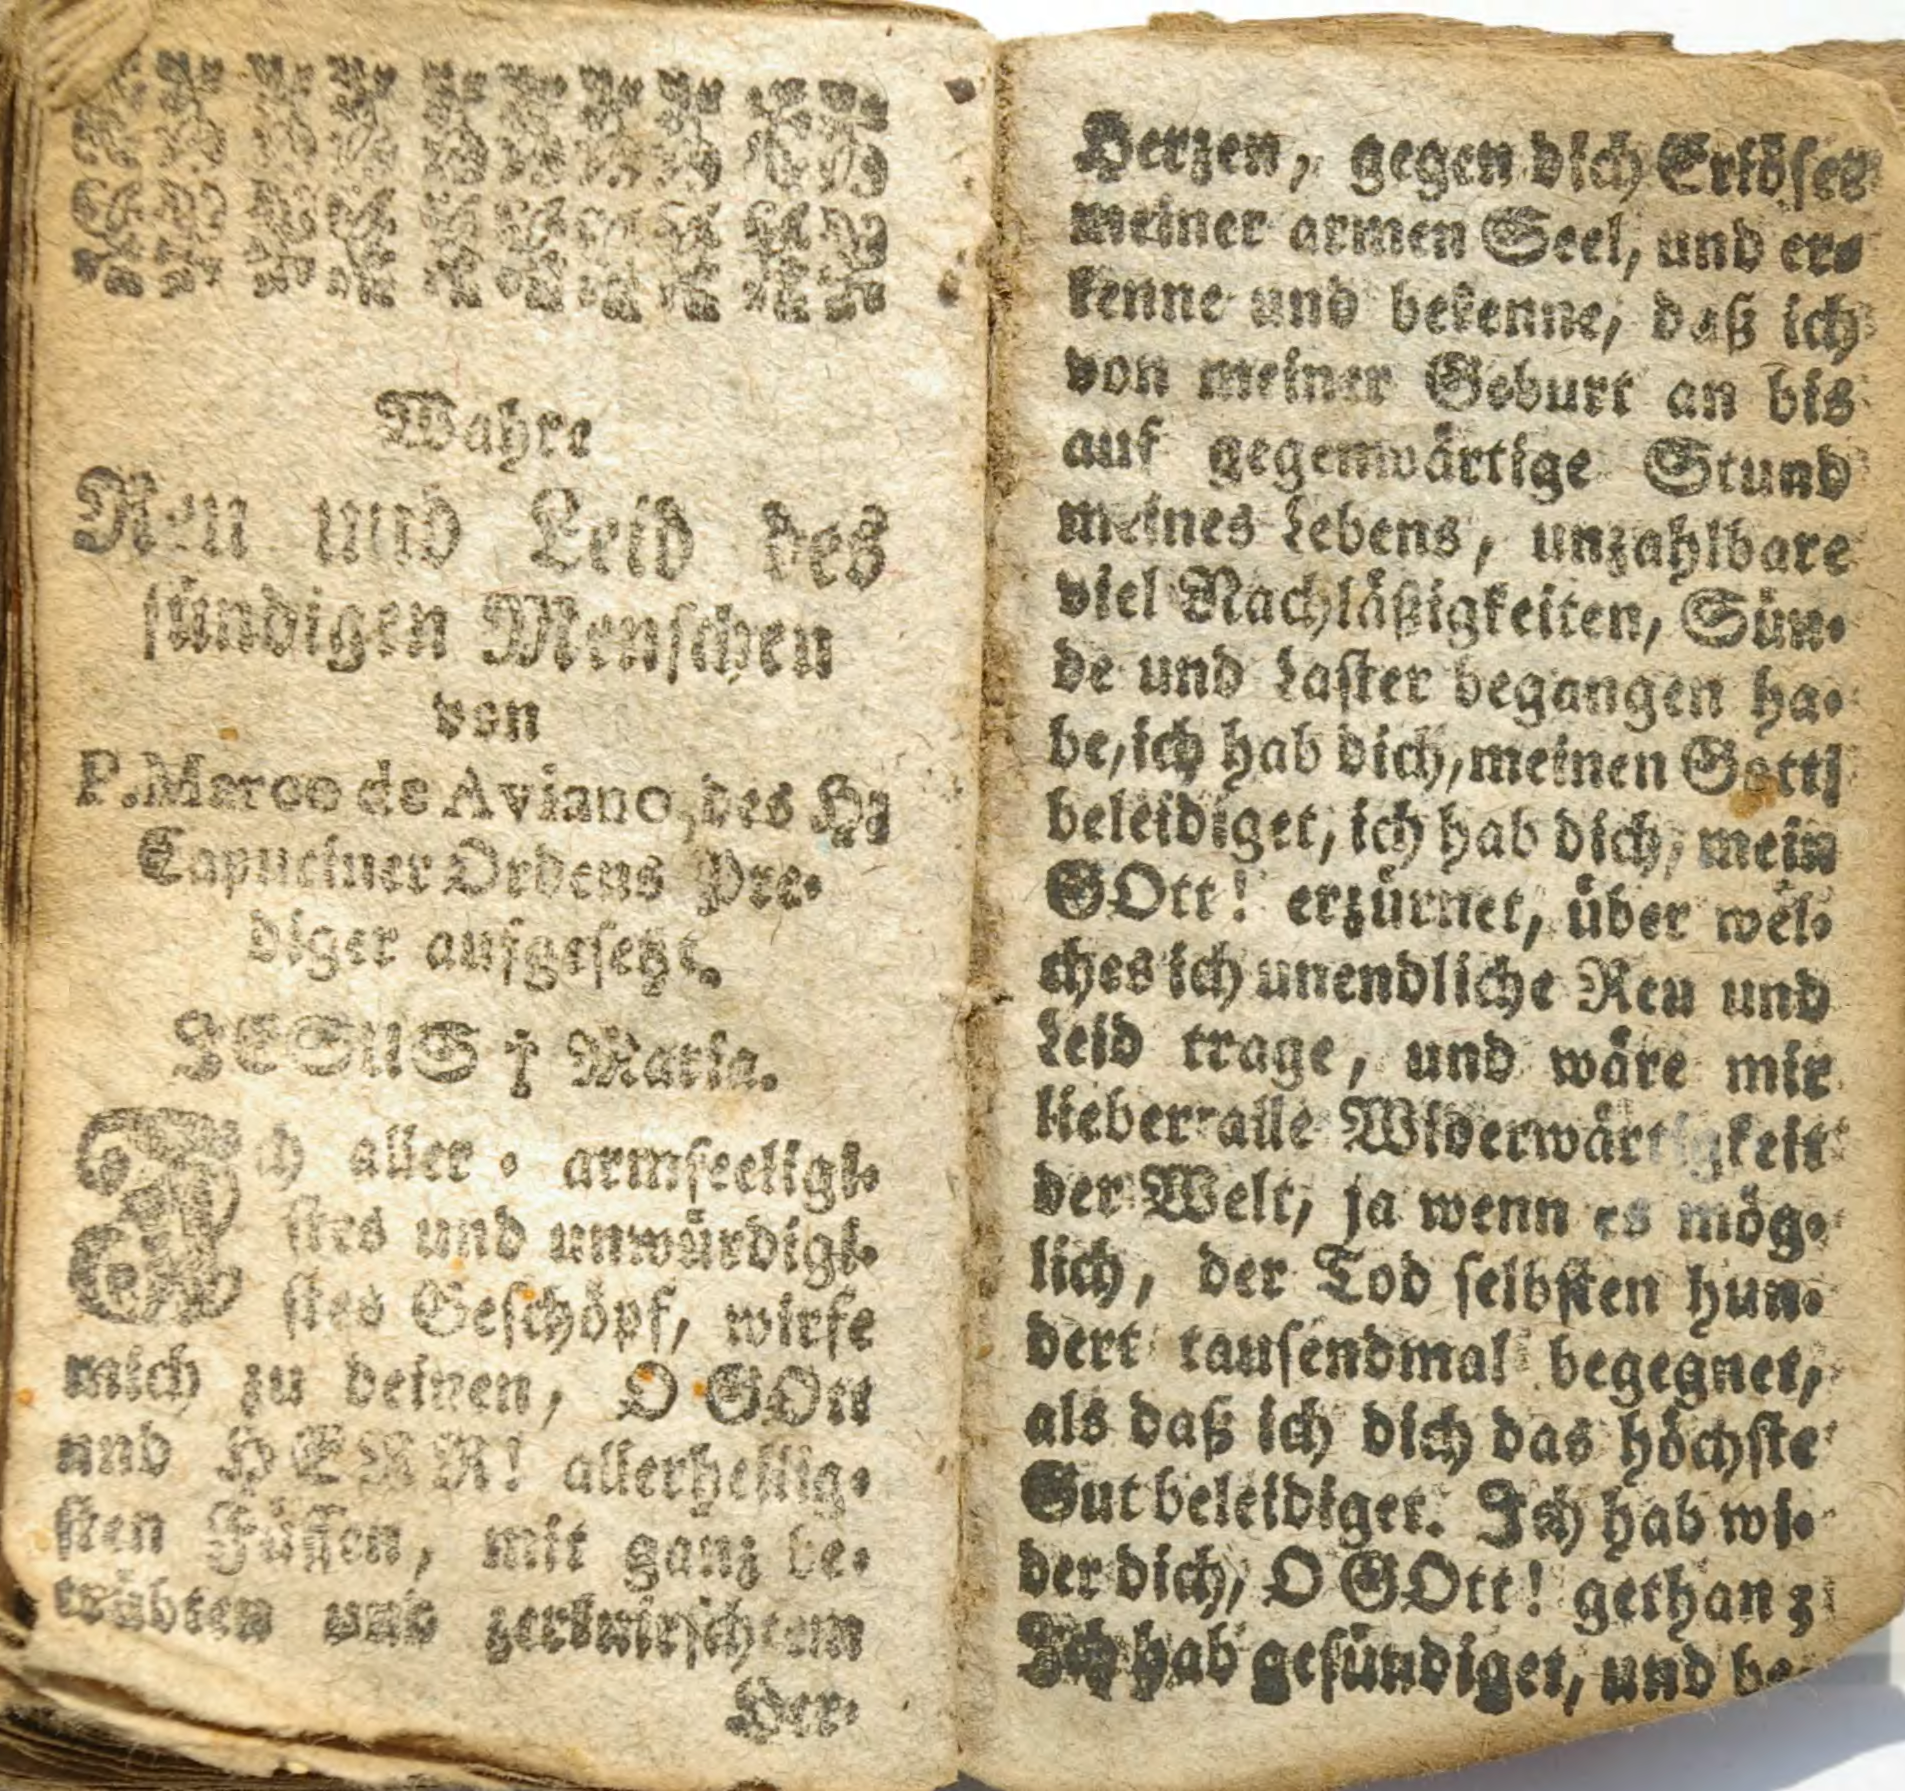 Wahre
Reu und Leid des
sündigen Menschen
von
P. Marco de Aviano, des H.
Capuciner Ordens Pre-
diger aufgesetzt.
JESUS † Maria.
Ich aller- armseeligi-
stes und unwürdigi-
stes Geschöpf, wirfe
mich zu deinen, O GOtt
und HERR! allerheilig-
sten Füssen, mit ganz be-
trübten und zerknirschtem
Her-
Herzen, gegen dich Erlöser
meiner armen Seel, und er-
kenne und bekenne, daß ich
von meiner Geburt an bis
auf gegenwärtige Stund
meines Lebens, unzahlbare
viel Nachläßigkeiten, Sün-
de und Laster begangen ha-
be, ich hab dich, meinen Gott!
beleidiget, ich hab dich, mein
GOtt! erzürnet, über wel-
ches ich unendliche Reu und
Leid trage, und wäre mir
lieber alle Widerwärtigkeit
der Welt, ja wenn es mög-
lich, der Tod selbsten hun-
dert tausendmal begegnet,
als daß ich dich das höchste
Gut beleidiget. Ich hab wi-
der dich, O GOtt! gethan;
Ich hab gesündiget, und be-